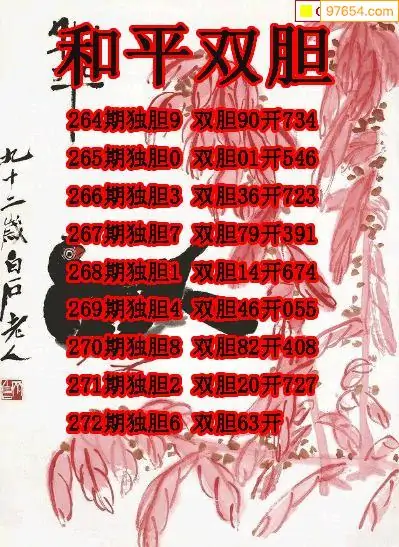 97654.com
和平双胆
264期独胆9 双胆90开734
265期独胆0 双胆01开546
266期独胆3 双胆36开723
267期独胆7 双胆79开391
268期独胆1 双胆14开674
269期独胆4 双胆46开055
270期独胆8 双胆82开408
271期独胆2 双胆20开727
272期独胆6 双胆63开
九十二岁白石老人